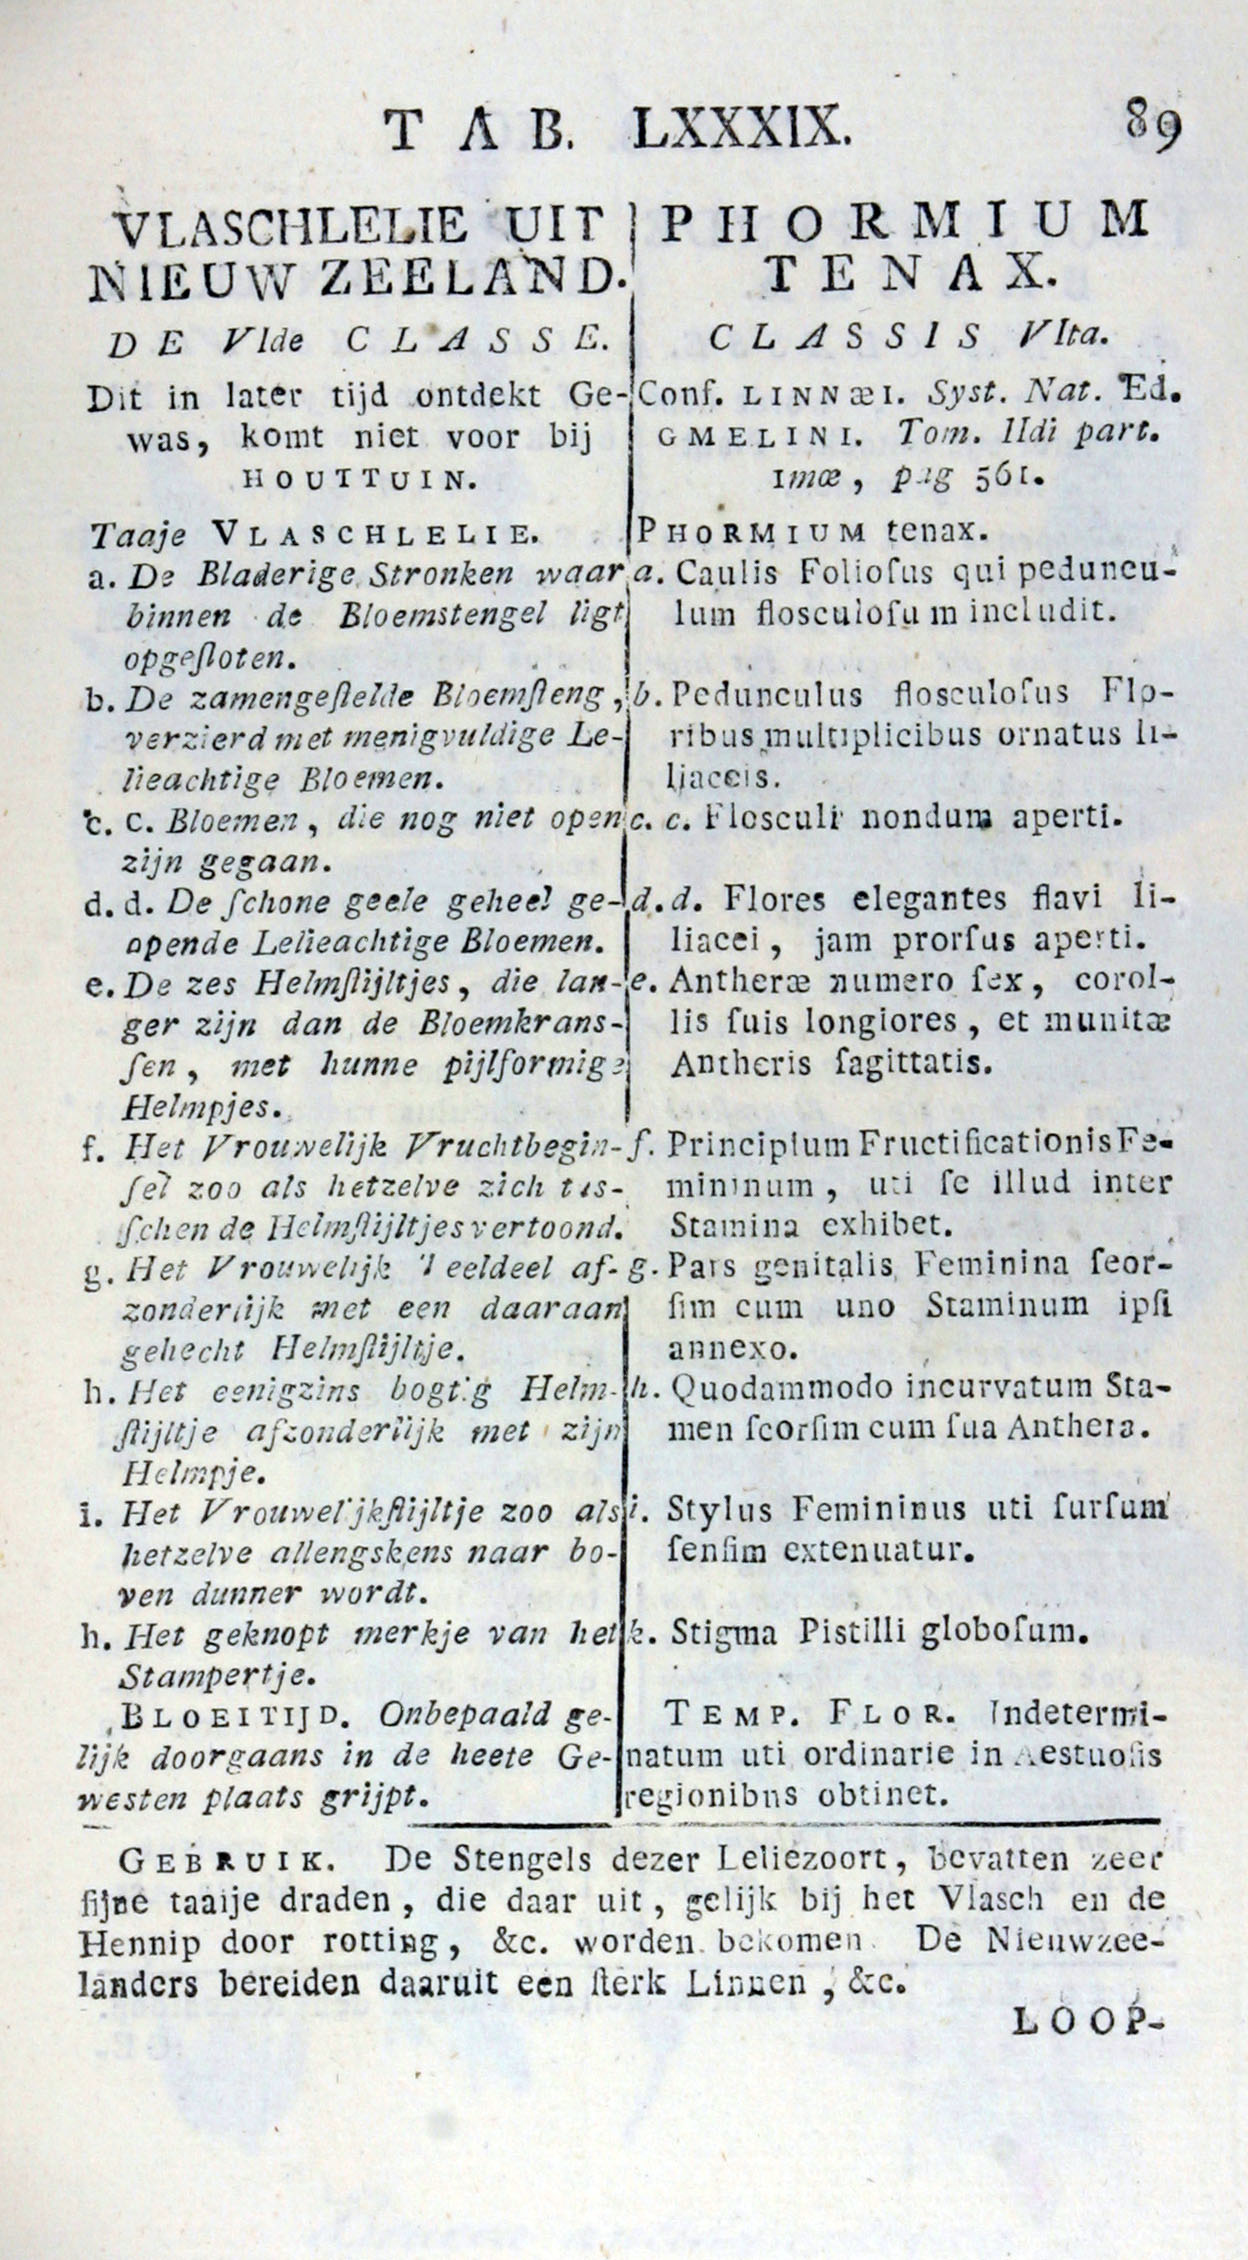 TAB. LXXXIX. 89
VLASCHLELIE UIT
NIEUW ZEELAND.
DE VIde CLASSE.
Dit in later tijd ontdekt Ge-
was, komt niet voor bij
HOUTTUIN.
Taaje VLASCHLELIE.
a. De Bladerige Stronken waar
binnen de Bloemstengel ligt
opgeſloten.
b. De zamengeſtelde Bloemſteng,
verzierd met menigvuldige Le-
lieachtige Bloemen.
c. c. Bloemen, die nog niet open
zijn gegaan.
d. d. De ſchone geele geheel ge-
opende Lelieachtige Bloemen.
e. De zes Helmſtijltjes, die lan-
ger zijn dan de Bloemkrans-
ſen, met hunne pijlformige
Helmpjes.
f. Het Vrouwelijk Vruchtbegin-
ſel zoo als hetzelve zich tus-
ſchen de Helmſtijltjes vertoond.
g. Het Vrouwelijk Teeldeel af-
zonderlijk met een daaraan
gehecht Helmſtijltje.
h. Het eenigzins bogtig Helm-
ſtijltje afzonderlijk met zijn
Helmpje.
i. Het Vrouwelijkſtijltje zoo als
hetzelve allengskens naar bo-
ven dunner wordt.
h. Het geknopt merkje van het
Stampertje.
BLOEITIJD. Onbepaald ge-
lijk doorgaans in de heete Ge-
westen plaats grijpt.
PHORMIUM
TENAX.
CLASSIS VIta.
Conf. LINNÆI. Syst. Nat. Ed.
GMELINI. Tom. IIdi part.
1mæ, pag 561.
PHORMIUM tenax.
a. Caulis Folioſus qui peduncu-
lum flosculoſum includit.
b. Pedunculus flosculoſus Flo-
ribus multiplicibus ornatus li-
liaceis.
c. c. Flosculi nondum aperti.
d. d. Flores elegantes flavi li-
liacei, jam prorſus aperti.
e. Antheræ numero ſex, corol-
lis ſuis longiores, et munitæ
Antheris ſagittatis.
f. Principium Fructificationis Fe-
mininum, uti ſe illud inter
Stamina exhibet.
g. Pars genitalis Feminina ſeor-
ſim cum uno Staminum ipſi
annexo.
h. Quodammodo incurvatum Sta-
men ſeorſim cum ſua Anthera.
i. Stylus Femininus uti ſurſum
ſenſim extenuatur.
k. Stigma Pistilli globoſum.
TEMP. FLOR. Indetermi-
natum uti ordinarie in Aestuoſis
regionibus obtinet.
GEBRUIK. De Stengels dezer Leliezoort, bevatten zeer
fijne taaije draden, die daar uit, gelijk bij het Vlasch en de
Hennip door rotting, &c. worden bekomen. De Nieuwzee-
landers bereiden daaruit een ſterk Linnen, &c.
LOOP-